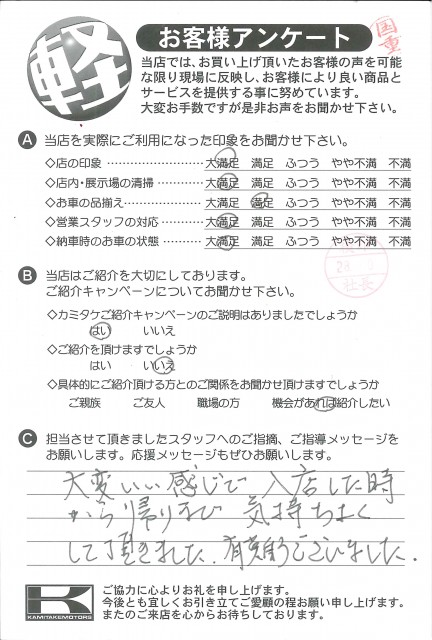 軽
お客様アンケート
国重
当店では、お買い上げ頂いたお客様の声を可能
な限り現場に反映し、お客様により良い商品と
サービスを提供する事に努めています。
大変お手数ですが是非お声をお聞かせ下さい。
A 当店を実際にご利用になった印象をお聞かせ下さい。
◇店の印象 ………………… 大満足 満足 ふつう やや不満 不満
◇店内・展示場の清掃………… 大満足 満足 ふつう やや不満 不満
◇お車の品揃え……………… 大満足 満足 ふつう やや不満 不満
◇営業スタッフの対応 ……… 大満足 満足 ふつう やや不満 不満
◇納車時のお車の状態 ……… 大満足 満足 ふつう やや不満 不満
社長
B 当店はご紹介を大切にしております。
ご紹介キャンペーンについてお聞かせ下さい。
◇カミタケご紹介キャンペーンのご説明はありましたでしょうか
はい いいえ
◇ご紹介を頂けますでしょうか
はい いいえ
◇具体的にご紹介頂ける方とのご関係をお聞かせ頂けますでしょうか
ご親族 ご友人 職場の方 機会があれば紹介したい
C 担当させて頂きましたスタッフへのご指摘、ご指導メッセージを
お願いします。応援メッセージもぜひお願いします。
大変いい感じで 入店した時
から帰りまで 気持ちよく
して頂きました。有難うございました。
KAMITAKEMOTORS
ご協力に心よりお礼を申し上げます。
今後とも宜しくお引き立てご愛顧の程お願い申し上げます。
またのご来店を心からお待ちしております。